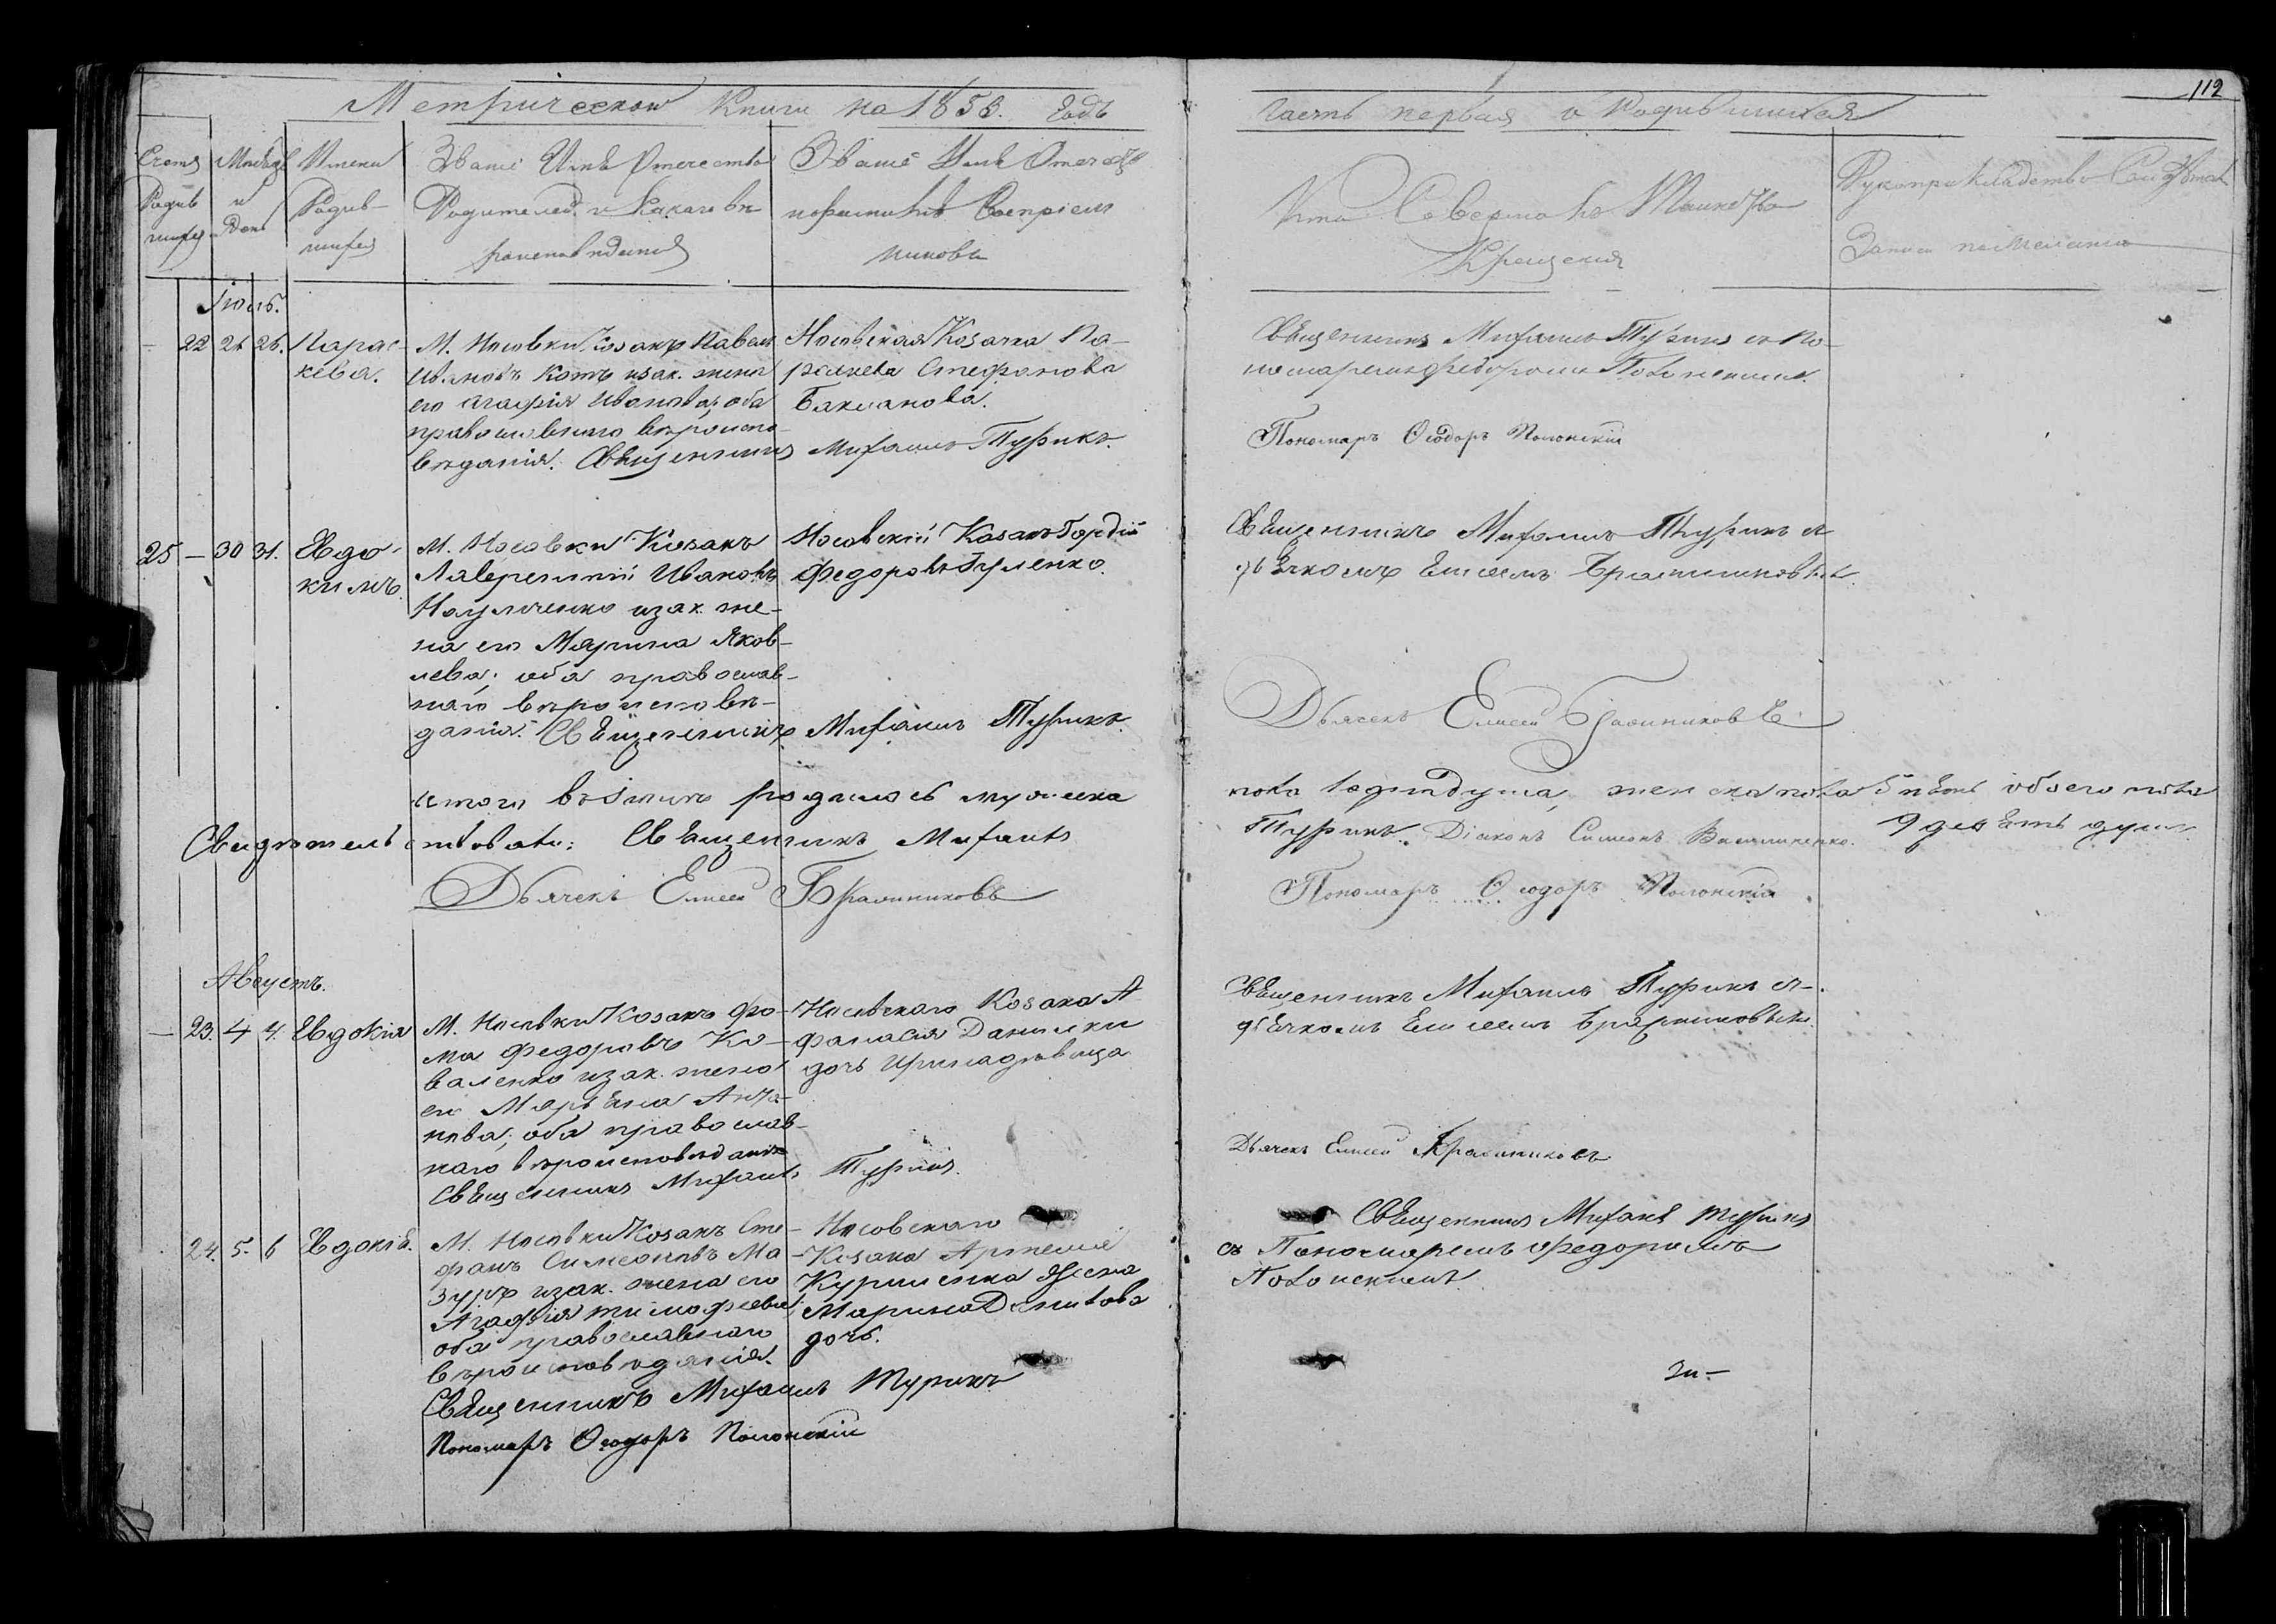 112
Метрической Книги на 1853. Годъ
часть первая о Родившихся
Счетъ Родив-шихся
Мѣсяцъ и День
Имена Родив-шихся
Званіе Имя Отчество
Родителей и Какаго вѣ
роисповѣданія
Званіе Имя Отчество
Воспріем
никовъ
Кто Совершалъ Таинство
Крещенія
Рукоприкладство
Записи по желанію
Іюль.
— 22 26. Парас-
кева.
М. Носовки Козакъ Павелъ
Котъ изак. жена
его Агафія Иванова, оба
православнаго вѣроиспо-
вѣданія. Священникъ Михаилъ Турикъ.
Носовская Козачка Па-
раскева Стефанова
Бакланова.
Священникъ Михаилъ Турикъ съ По-
номаремъ Федоромъ Полонскимъ.
Пономаръ Ѳеодоръ Полонскій
25 — 30 31. Евдо-
кимъ.
М. Носовки Козакъ
Лаврентій Ивановъ
изак. же-
на его Марина Яков-
лева; оба православ-
наго вѣроисповѣ-
данія. Священникъ Михаилъ Турикъ.
Носовскій Козакъ Гордій
Федоровъ Гуленко.
Священникъ Михаилъ Турикъ съ
дьячкомъ Елисеемъ
Дьячекъ Елисей
итого въ Іюлѣ родилось мужеска
пола душа, женска пола 5 пять обоего пола
9 девять душъ
Свидѣтельствовали: Священникъ Михаилъ
Турикъ. Діаконъ Симеонъ
Дьячекъ Елисей
Пономаръ Ѳеодоръ Полонскій
Августъ.
— 23. 4 4. Евдокія
М. Носовки Козакъ Фо-
ма Федоровъ Ко-
валенко изак. жена
его Маріанна Анто-
нова; оба православ-
наго вѣроисповѣданія
Священникъ Михаилъ Турикъ.
Носовскаго Козака А-
фанасія Данилки
дочь Ирина дѣвица
Священникъ Михаилъ Турикъ съ
дьячкомъ Елисеемъ
Дьячекъ Елисей
24. 5. 6 Евдокія.
М. Носовки Козакъ Сте-
фанъ Симеоновъ Ма-
зуръ изак. жена его
Агафія Тимофеева;
оба православнаго
вѣроисповѣданія.
Священникъ Михаилъ Турикъ
Пономаръ Ѳеодоръ Полонскій
Носовскаго
Козака Артемія
жена
Марина
дочь.
Священникъ Михаилъ Турикъ
съ Пономаремъ Федоромъ
Полонскимъ.